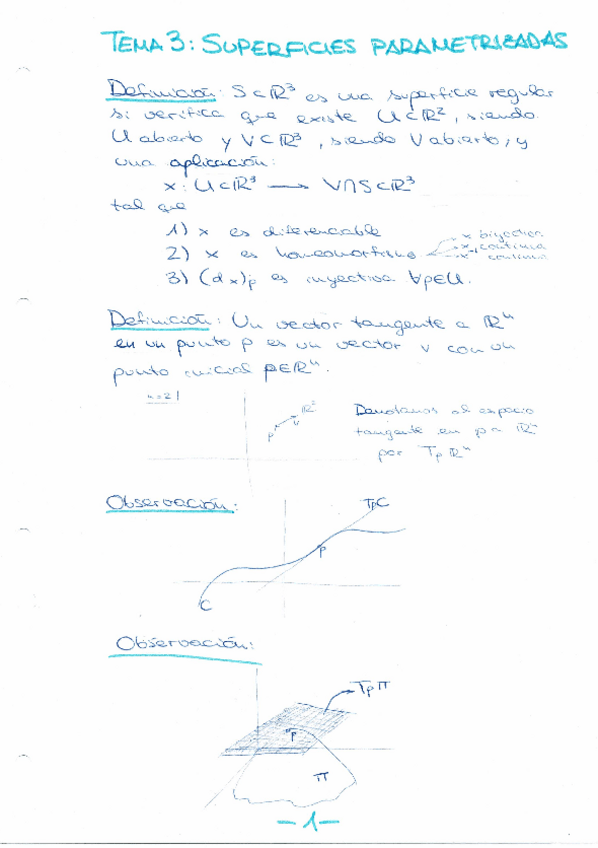 TEMA 3: SUPERFICIES PARAMETRIZADAS
Definición: S⊂ℝ³ es una superficie regular
si verifica que existe U⊂ℝ², siendo
U abierto y V⊂ℝ³, siendo V abierto, y
una aplicación:
x: U⊂ℝ³ → V∩S⊂ℝ³
tal que
1) x es diferenciable
2) x es homeomorfismo
x biyectiva
x continua
x⁻¹ continua
3) (dx)p es inyectiva ∀p∈U.
Definición: Un vector tangente a ℝⁿ
en un punto p es un vector v con un
punto inicial p∈ℝⁿ.
n=2
ℝ²
p
v
Denotamos al espacio
tangente en p a ℝⁿ
por Tpℝⁿ
Observación:
TpC
p
C
Observación:
TpΠ
p
Π
-1-